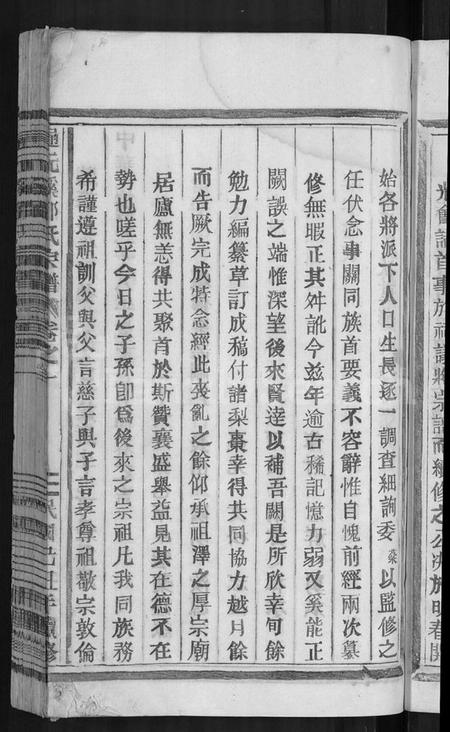 始各將派下人口生長逐一調查細詢委棻以監修之
任伏念事關同族首要義不容辭惟自愧前經兩次纂
修無暇正其舛訛今茲年逾古稀記憶力弱又奚能正
闕誤之端惟深望後來賢達以補吾闕是所欣幸旬餘
勉力編纂草訂成稿付諸梨棗幸得共同協力越月餘
而告厥完成特念經此喪亂之餘仰承祖澤之厚宗廟
居廬無恙得共聚首於斯贊襄盛舉益見其在德不在
勢也嗟乎今日之子孫卽爲後來之宗祖凡我同族務
希謹遵祖訓父與父言慈子與子言孝尊祖敬宗敦倫
氏宗譜